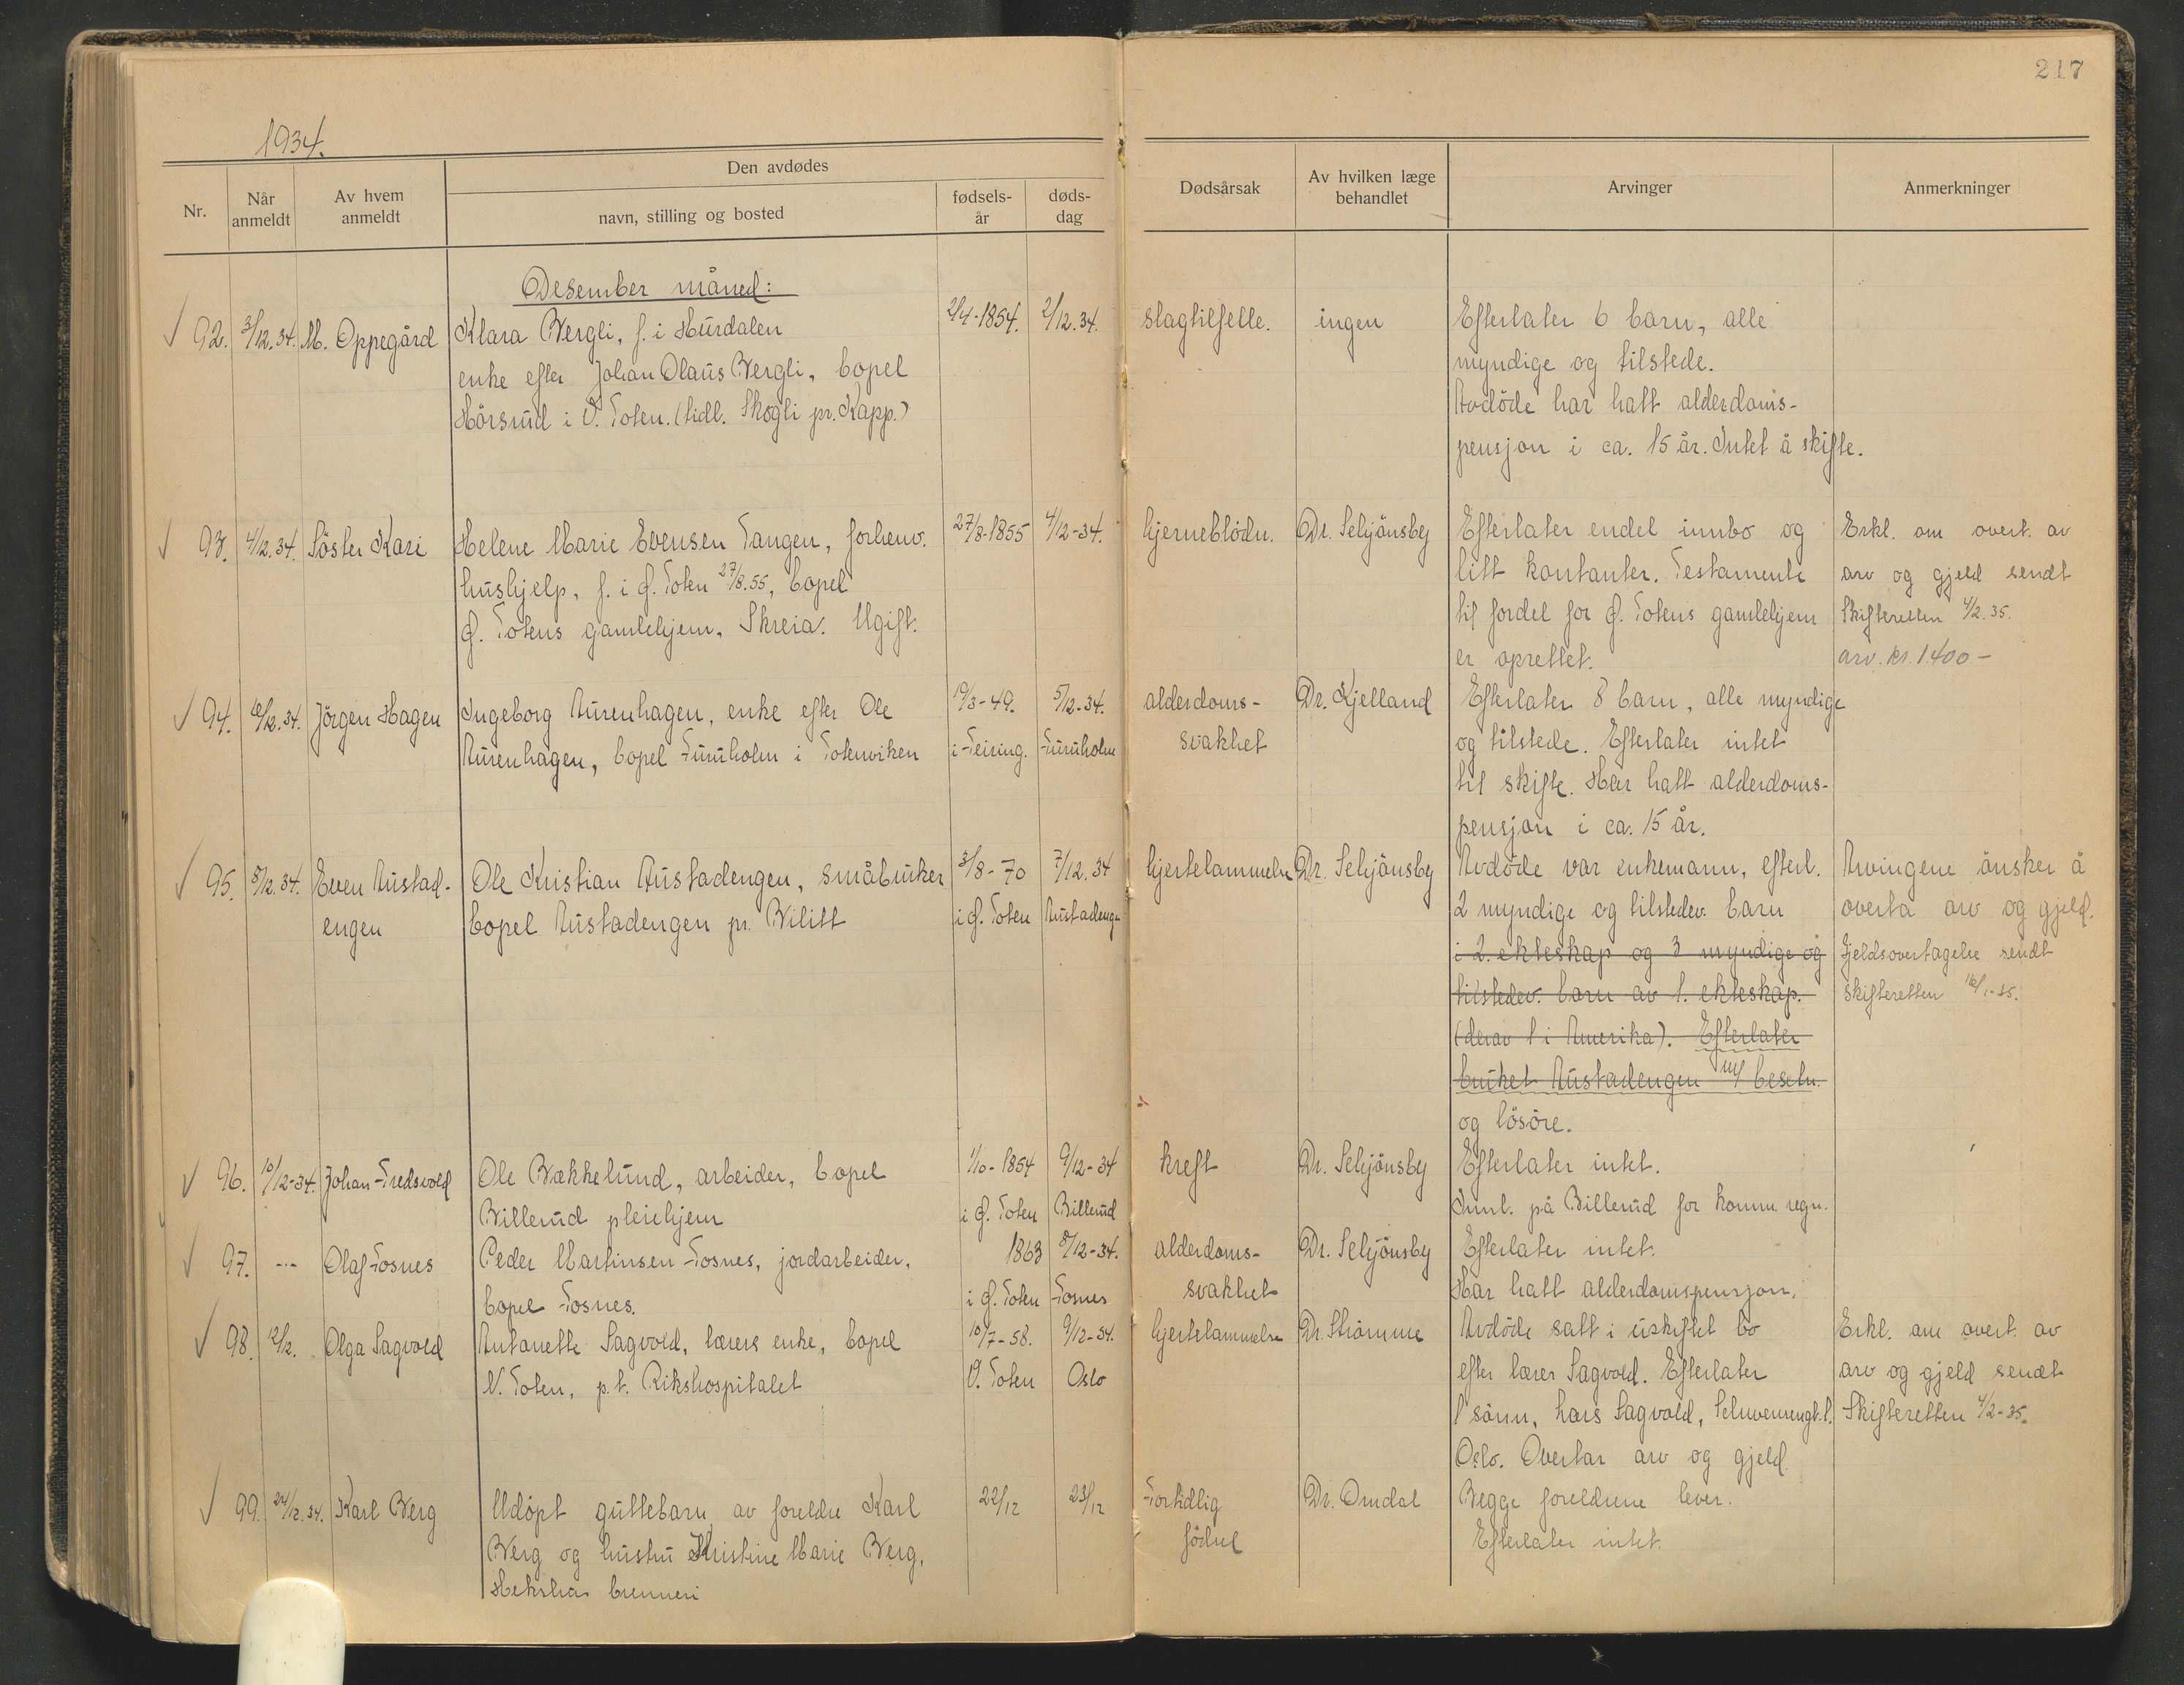 217
1934.
Den avdødes
Nr.
Når anmeldt
Av hvem anmeldt
navn, stilling og bosted
fødsels-år
døds-dag
Dødsårsak
Av hvilken læge behandlet
Arvinger
Anmerkninger
Desember måned:
92. 3/12.34. M. Oppegård Klara Bergli, f. i Hurdalen 2/4-1854. 2/12.34. slagtilfelle. ingen Efterlater 6 barn, alle
enke efter Johan Olaus Bergli, bopel myndige og tilstede.
Hörsrud i V. Toten. (tidl. Skogli pr. Kapp.) Avdöde har hatt alderdoms-
pensjon i ca. 15 år. Intet å skifte.
93. 4/12.34. Söster Kari Helene Marie Evensen Tangen, forhenv. 27/8-1855 4/12-34. hjerneblödn. Dr. Seljönsby Efterlater endel innbo og Erkl. om overt. av
hushjelp, f. i Ö. Toten 27/8.55, bopel litt kontanter. Testamente arv og gjeld sendt
Ö. Totens gamlehjem, Skreia. Ugift. til fordel for Ö. Totens gamlehjem Skifteretten 4/2.35.
er oprettet. arv. kr. 1400-
94. 6/12.34. Jörgen Hagen Ingeborg Aurenhagen, enke efter Ole 19/3-49. 5/12-34. alderdoms- Dr. Kjelland Efterlater 8 barn, alle myndige
Aurenhagen, bopel Furuholm i Totenviken i Feiring. Furuholm svakhet og tilstede. Efterlater intet
til skifte. Har hatt alderdoms-
pensjon i ca. 15 år.
95. 8/12.34. Even Austad- Ole Kristian Austadengen, småbruker 3/8-70 7/12.34 hjertelammelse Dr. Seljönsby Avdöde var enkemann, efterl. Arvingene önsker å
engen bopel Austadengen pr. Bilitt i Ö. Toten Austadengen 2 myndige og tilstedev. barn overta arv og gjeld.
i 2. ekteskap og 3 myndige og Gjeldsovertagelse sendt
tilstedev. barn av 1. ekteskap. skifteretten 16/1-35.
(derav 1 i Amerika). Efterlater
bruket Austadengen m/ besetn.
og lösöre.
96. 10/12-34. Johan Fredsvold Ole Bækkelund, arbeider, bopel 1/10-1854 9/12-34 kreft Dr. Seljönsby Efterlater intet.
Billerud pleiehjem i Ö. Toten Billerud Innl. på Billerud for komm. regn.
97. -"- Olaf Fosnes Peder Martinsen Fosnes, jordarbeider, 1863 8/12-34. alderdoms- Dr. Seljönsby Efterlater intet.
bopel Fosnes. i Ö. Toten Fosnes svakhet Har hatt alderdomspensjon.
98. 12/12. Olga Sagvold Antonette Sagvold, lærers enke, bopel 10/7-58. 9/12-34. hjertelammelse Dr. Strömme Avdöde satt i uskiftet bo Erkl. om overt. av
V. Toten, p.t. Rikshospitalet V. Toten Oslo efter lærer Sagvold. Efterlater arv og gjeld sendt
1 sönn, Lars Sagvold, Skifteretten 4/2-35.
Oslo. Overtar arv og gjeld.
99. 24/12.34. Karl Berg Udöpt guttebarn av foreldre Karl 22/12 23/12 Fortidlig Dr. Omdal Begge foreldrene lever.
Berg og hustru Kristine Marie Berg, födsel Efterlater intet.
brenneri